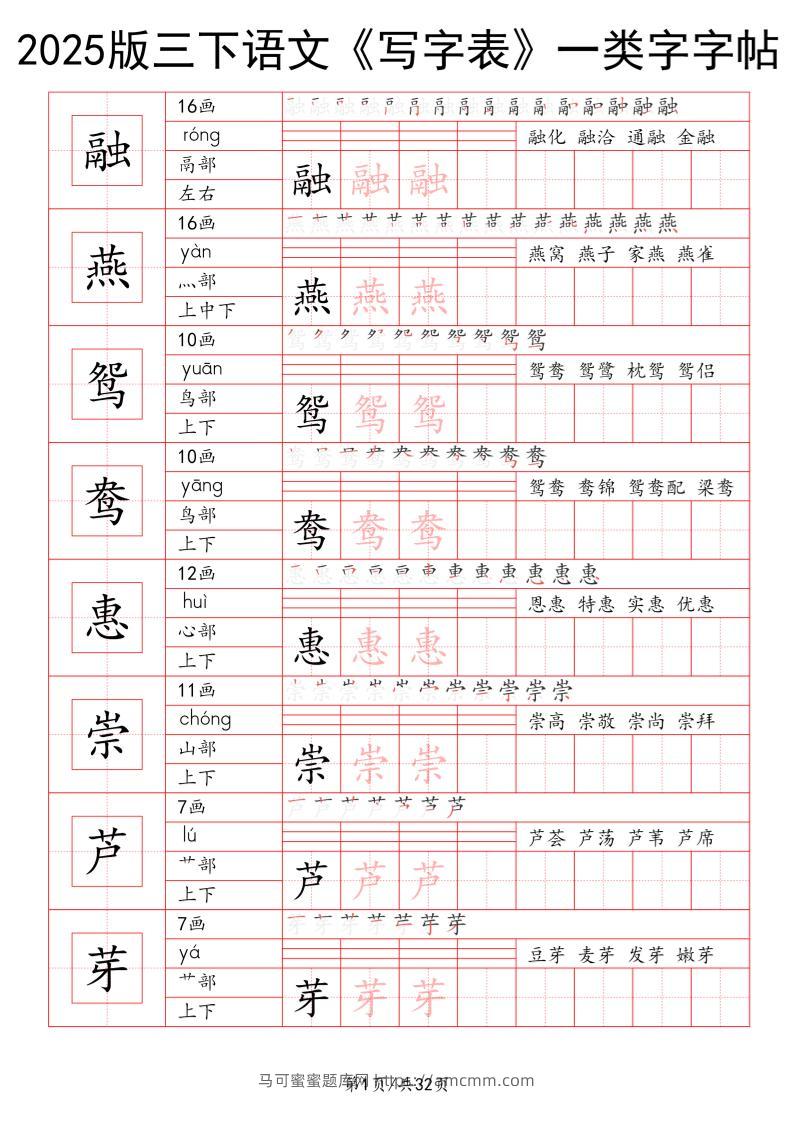 2025版三下语文《写字表》一类字字帖
融
16画
róng
融化 融洽 通融 金融
鬲部
左右
融 融 融
燕
16画
yàn
燕窝 燕子 家燕 燕雀
灬部
上中下
燕 燕 燕
鸳
10画
yuān
鸳鸯 鸳鹭 枕鸳 鸳侣
鸟部
上下
鸳 鸳 鸳
鸯
10画
yāng
鸳鸯 鸯锦 鸳鸯配 梁鸯
鸟部
上下
鸯 鸯 鸯
惠
12画
huì
恩惠 特惠 实惠 优惠
心部
上下
惠 惠 惠
崇
11画
chóng
崇高 崇敬 崇尚 崇拜
山部
上下
崇 崇 崇
芦
7画
lú
芦荟 芦荡 芦苇 芦席
艹部
上下
芦 芦 芦
芽
7画
yá
豆芽 麦芽 发芽 嫩芽
艹部
上下
芽 芽 芽
马可蜜蜜题库网 https://amcmm.com
第1页/共32页